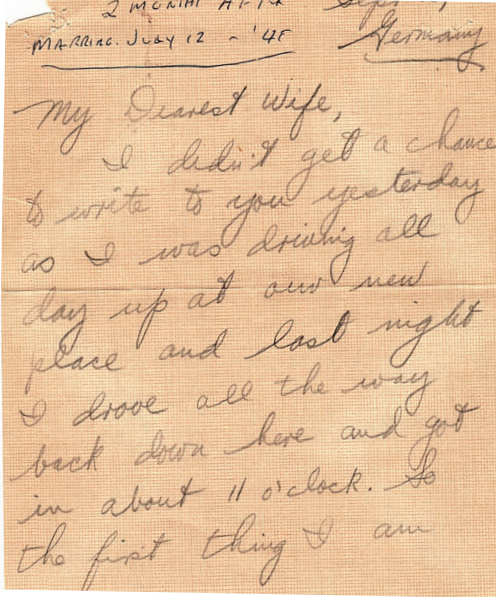 2 MONTHS AFTER
Sept
MARRIAGE. JULY 12 - '45
Germany
My Dearest Wife,
I didn't get a chance
to write to you yesterday
as I was driving all
day up at our new
place and last night
I drove all the way
back down here and got
in about 11 o'clock. So
the first thing I am